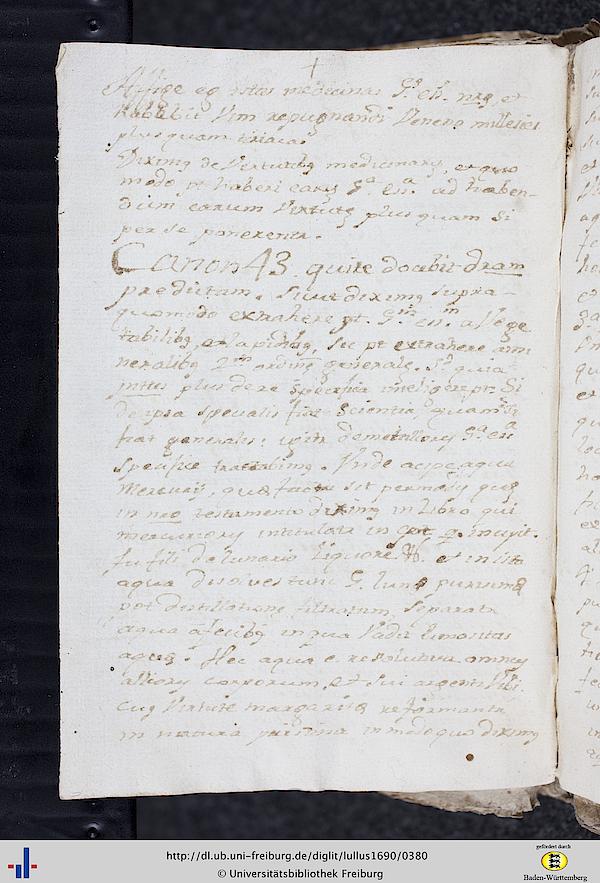 Affige eq istas medicinas
habebit Vim repugnandi Veneno
plus quam tiriaca.
Diximq de Vertutibq medicinarum, et quo
modo haberi earum 5.ª en.ª ad haben-
dum earum Vertutes plus quam si
per se ponerentr.
Canon 43. qui re doabit dram
predictam. Sicut diximq supra
quomodo extrahere pt. 5.m en.m a Vege
tabilibq, et lapidibq, sic pt extrahere a mi
neralibq 2.m ordine generale. quia
plus de re specifica
de ipsa specialis fiat scientia quam si
fiat generalis;
specifice tractabimq. Unde accipe aqua
Mercurii, que facta sit per modum que
in nro testamento diximq in Libro qui
mercuriorum intitulatr in incipit.
fili de lunario Liquore &. et in ista
aqua disolves tunc 5. lune purum
distillatione filtratum, separata
aqua a fecibq in qua Vadit limositas
aque. Hec aqua e. resolutiva omniu
aliorum corporum, et sui argenti Vivi
cuq Virtute margarite reformantr
in natura pristina in modo quo diximq
http://dl.ub.uni-freiburg.de/diglit/lullus1690/0380
© Universitätsbibliothek Freiburg
gefördert durch
Baden-Württemberg